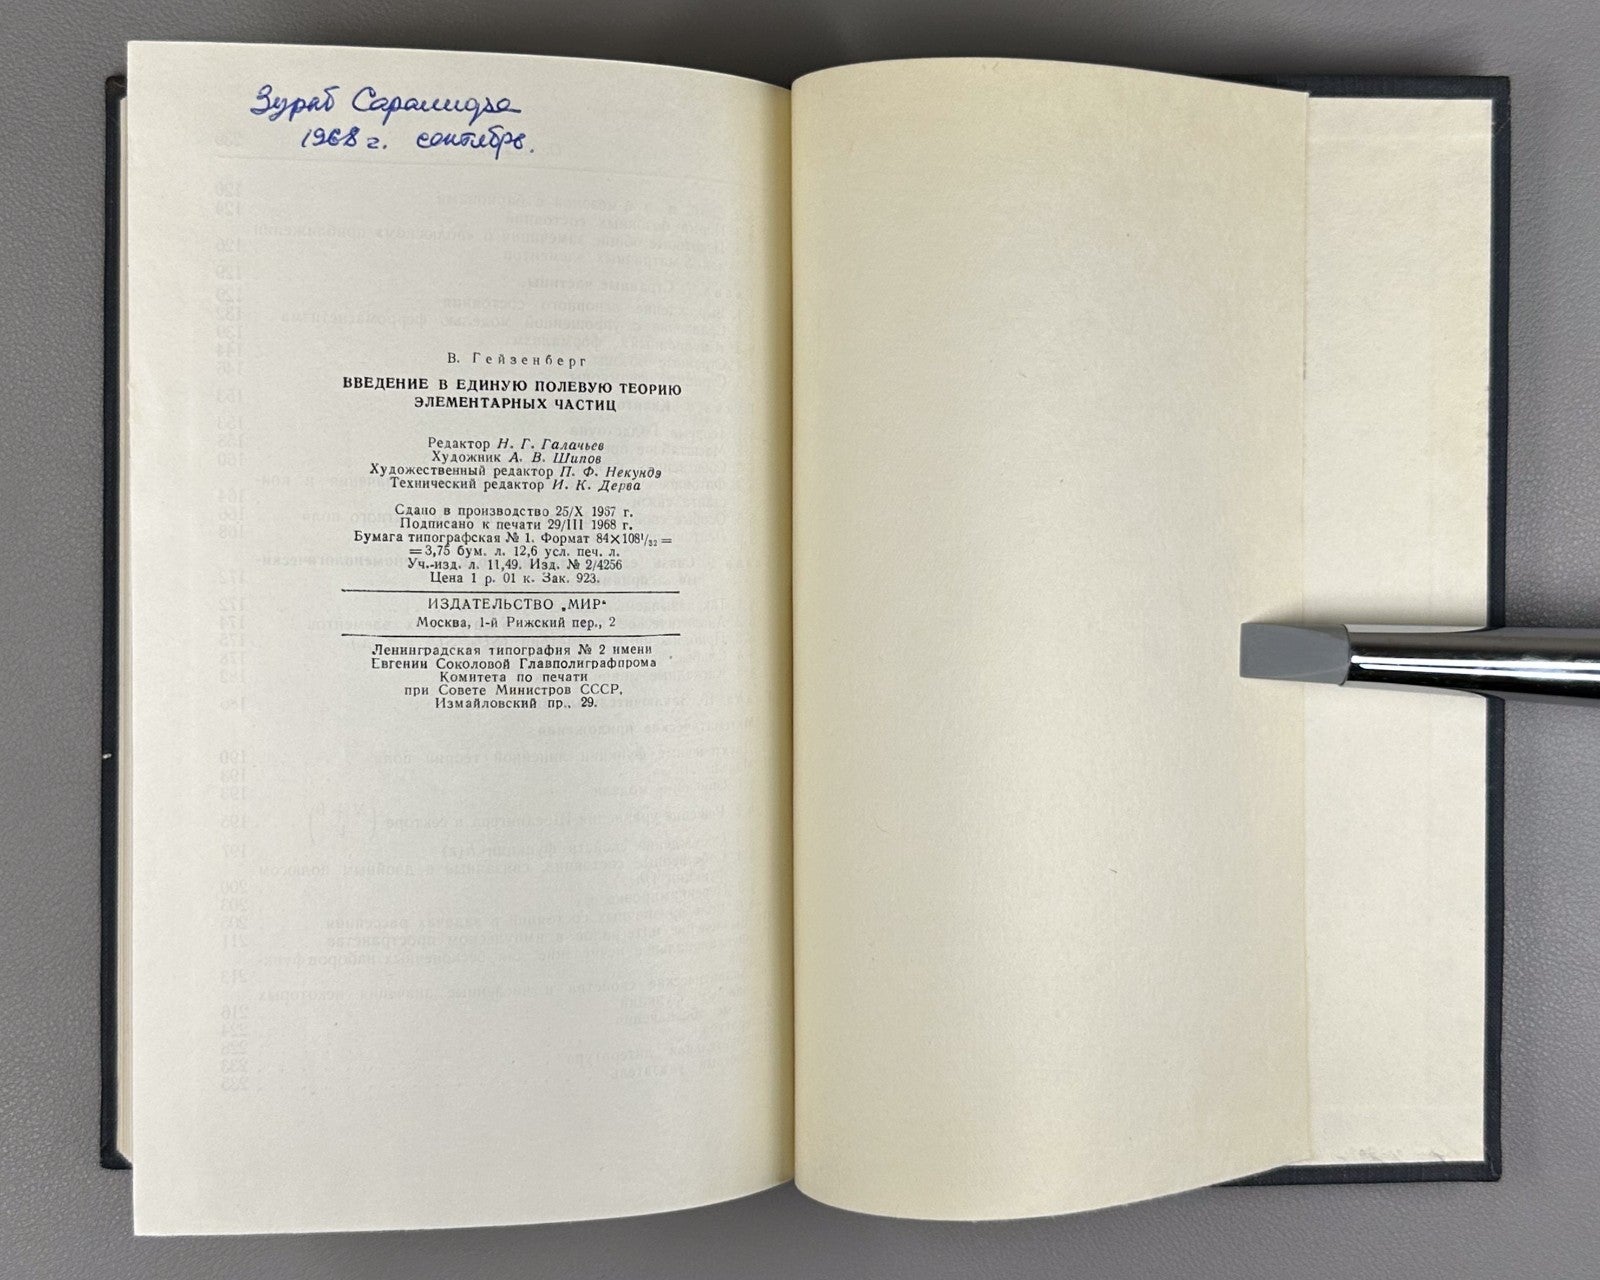 Зураб Сарамидзе
1968 г. сентябрь.
В. Гейзенберг
ВВЕДЕНИЕ В ЕДИНУЮ ПОЛЕВУЮ ТЕОРИЮ
ЭЛЕМЕНТАРНЫХ ЧАСТИЦ
Редактор Н. Г. Галачьев
Художник А. В. Шипов
Художественный редактор П. Ф. Некундэ
Технический редактор И. К. Дерва
Сдано в производство 25/X 1967 г.
Подписано к печати 29/III 1968 г.
Бумага типографская № 1. Формат 84×108¹/₃₂=
=3,75 бум. л. 12,6 усл. печ. л.
Уч.-изд. л. 11,49. Изд. № 2/4256
Цена 1 р. 01 к. Зак. 923.
ИЗДАТЕЛЬСТВО „МИР“
Москва, 1-й Рижский пер., 2
Ленинградская типография № 2 имени
Евгении Соколовой Главполиграфпрома
Комитета по печати
при Совете Министров СССР,
Измайловский пр., 29.